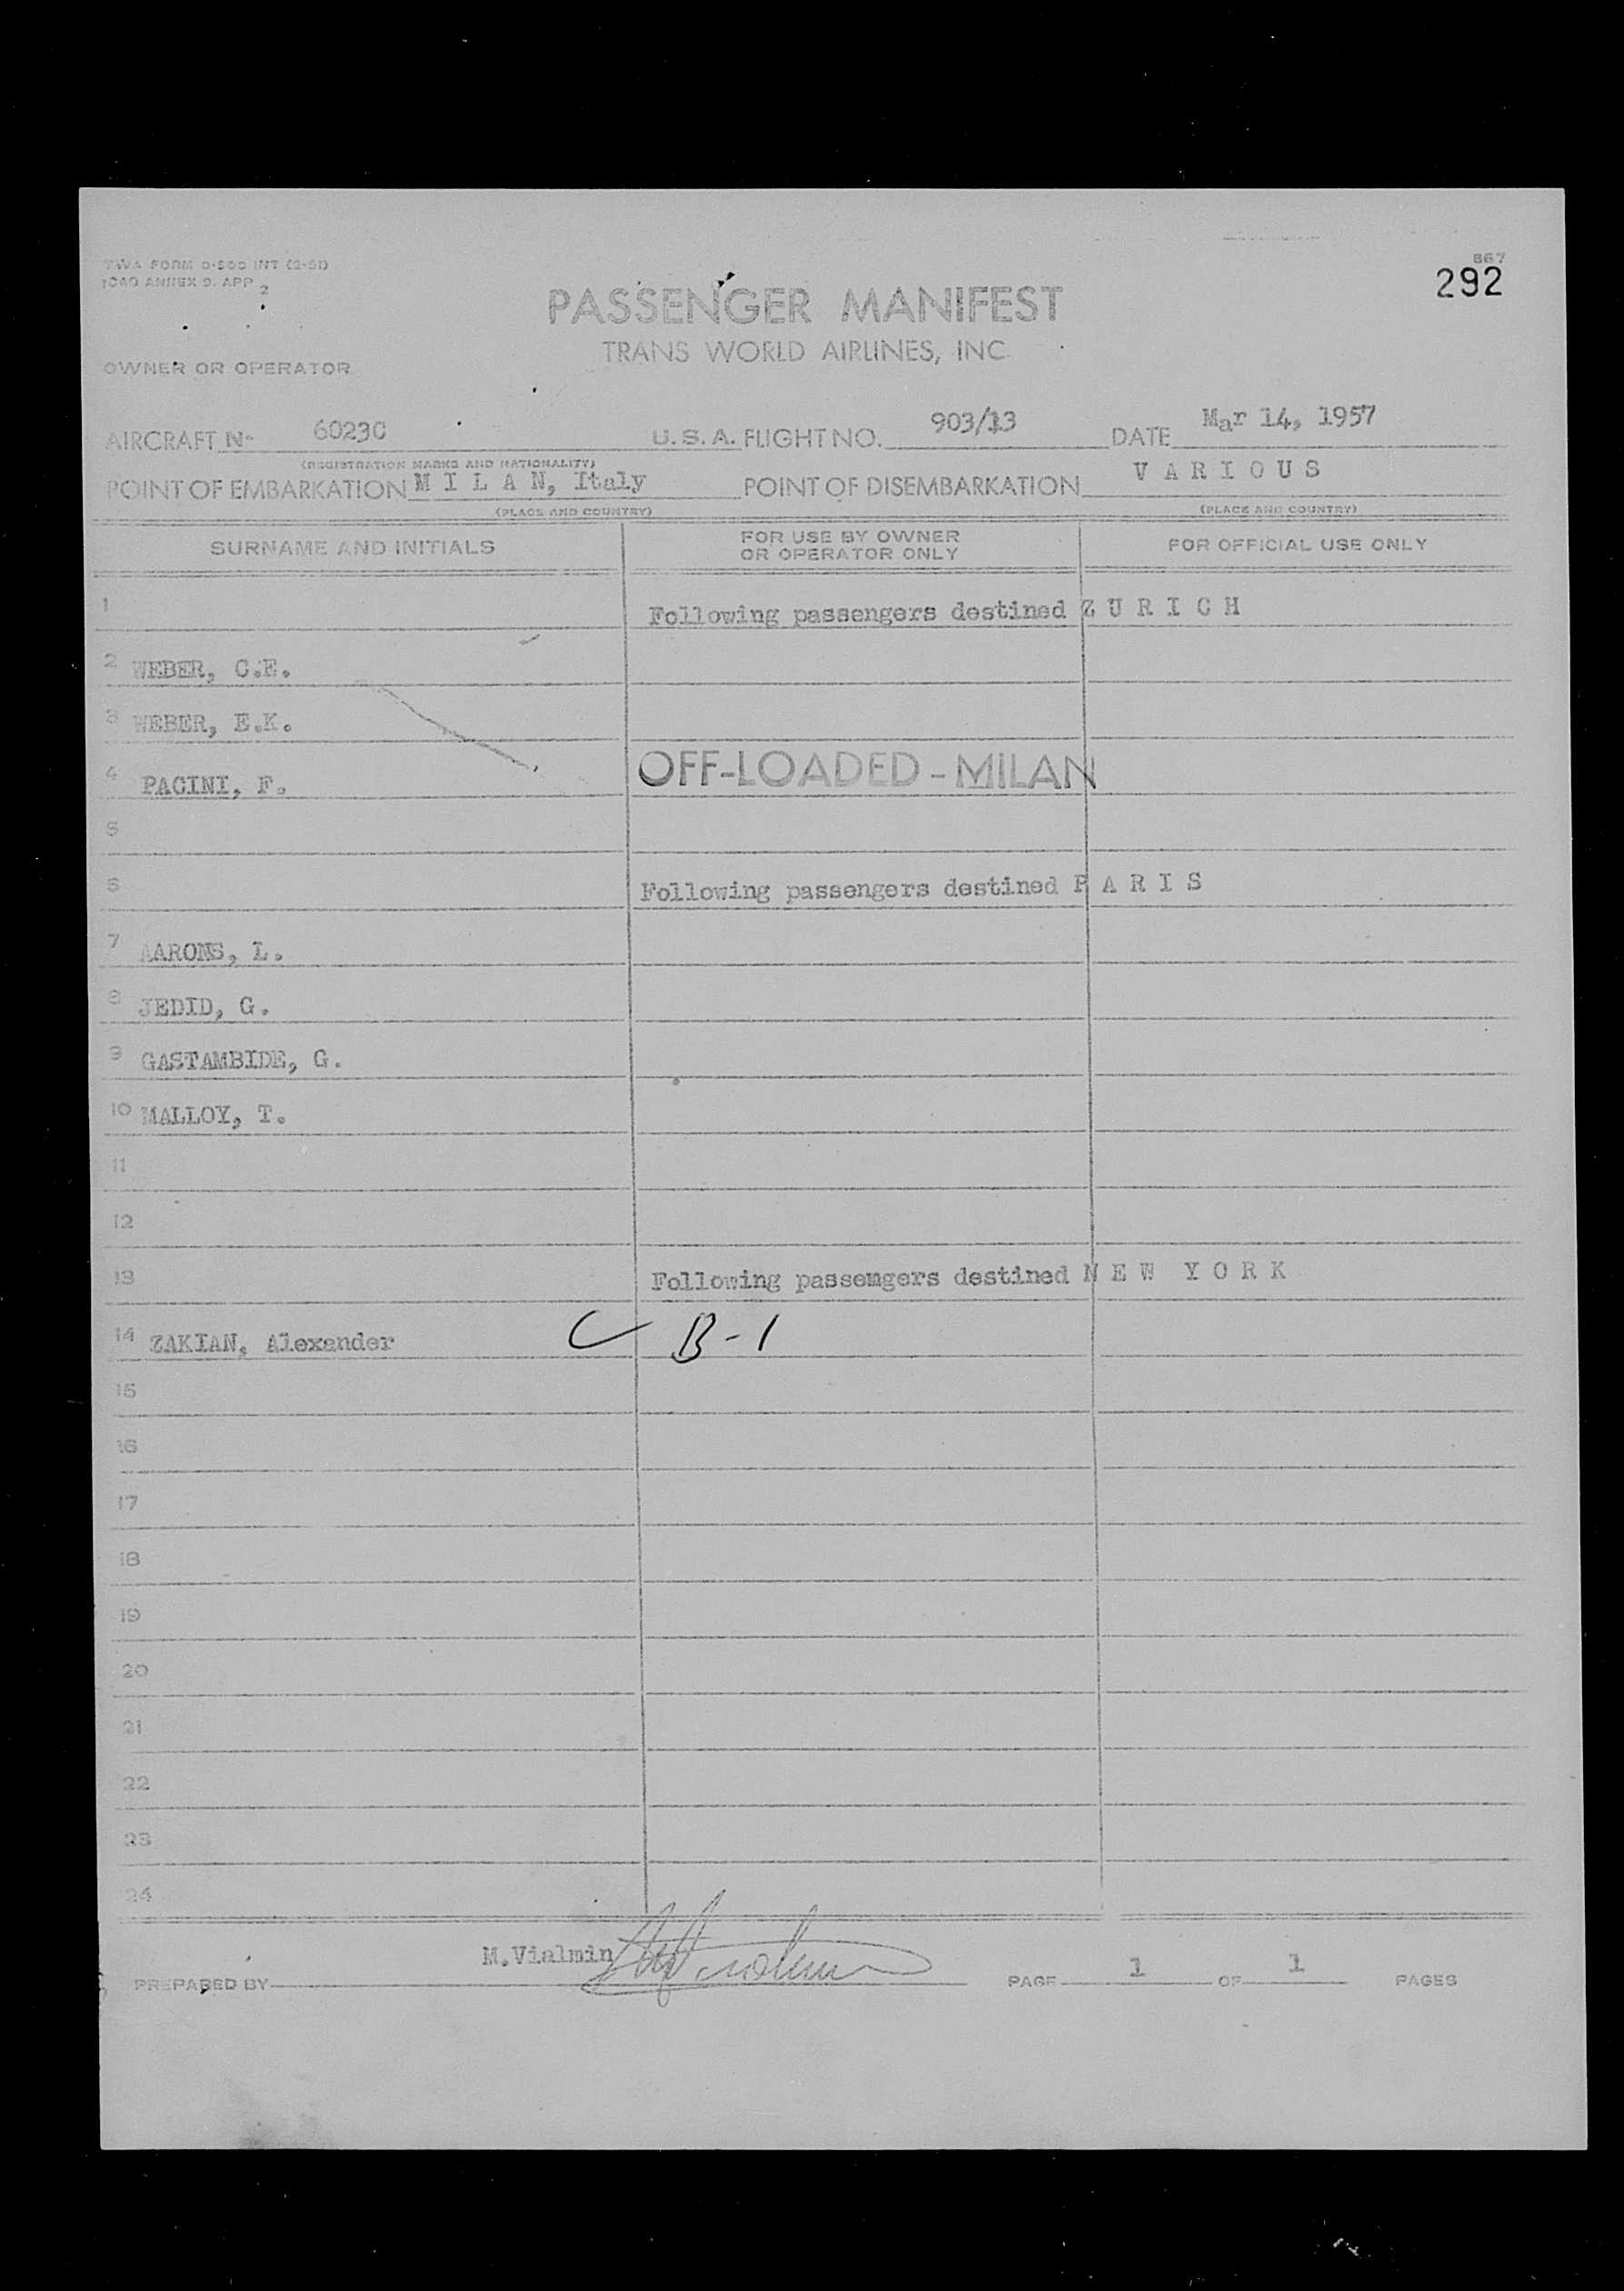 TWA FORM O-500 INT (2-51)
ICAO ANNEX 9. APP 2
867
292
PASSENGER MANIFEST
TRANS WORLD AIRLINES, INC.
OWNER OR OPERATOR
AIRCRAFT Nº 6023C U.S.A. FLIGHT NO. 903/13 DATE Mar 14, 1957
(REGISTRATION MARKS AND NATIONALITY)
POINT OF EMBARKATION M I L A N, Italy POINT OF DISEMBARKATION V A R I O U S
(PLACE AND COUNTRY) (PLACE AND COUNTRY)
SURNAME AND INITIALS FOR USE BY OWNER OR OPERATOR ONLY FOR OFFICIAL USE ONLY
1 Following passengers destined Z U R I C H
2 WEBER, C.E.
3 WEBER, E.K.
4 PACINI, F. OFF-LOADED - MILAN
5
6 Following passengers destined P A R I S
7 AARONS, L.
8 JEDID, G.
9 GASTAMBIDE, G.
10 MALLOY, T.
11
12
13 Following passemgers destined N E W Y O R K
14 ZAKIAN, Alexander C B-1
15
16
17
18
19
20
21
22
23
24
PREPARED BY M.Vialmin PAGE 1 OF 1 PAGES